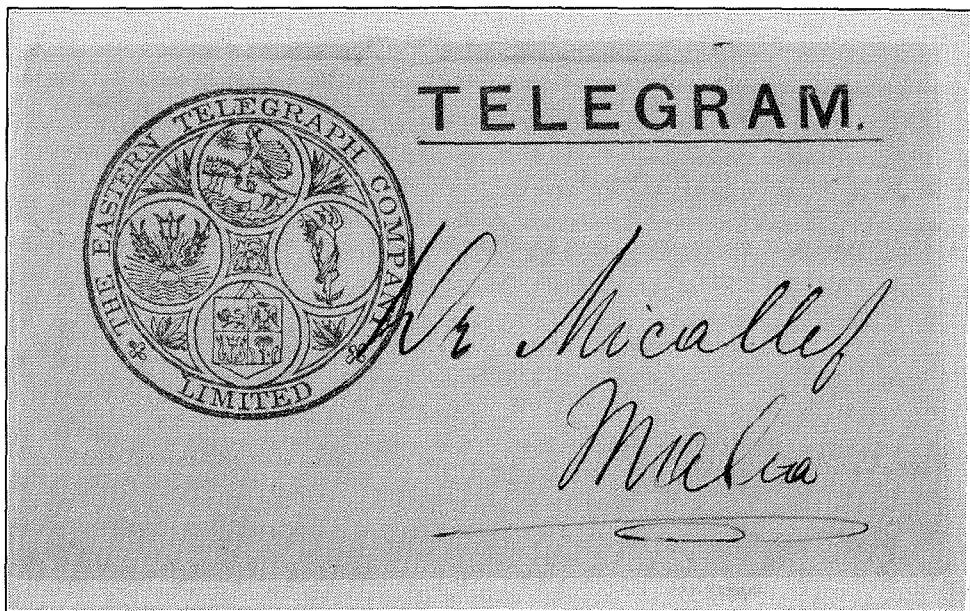 TELEGRAM.
THE EASTERN TELEGRAPH COMPANY
LIMITED
Dr Micallef
Malta